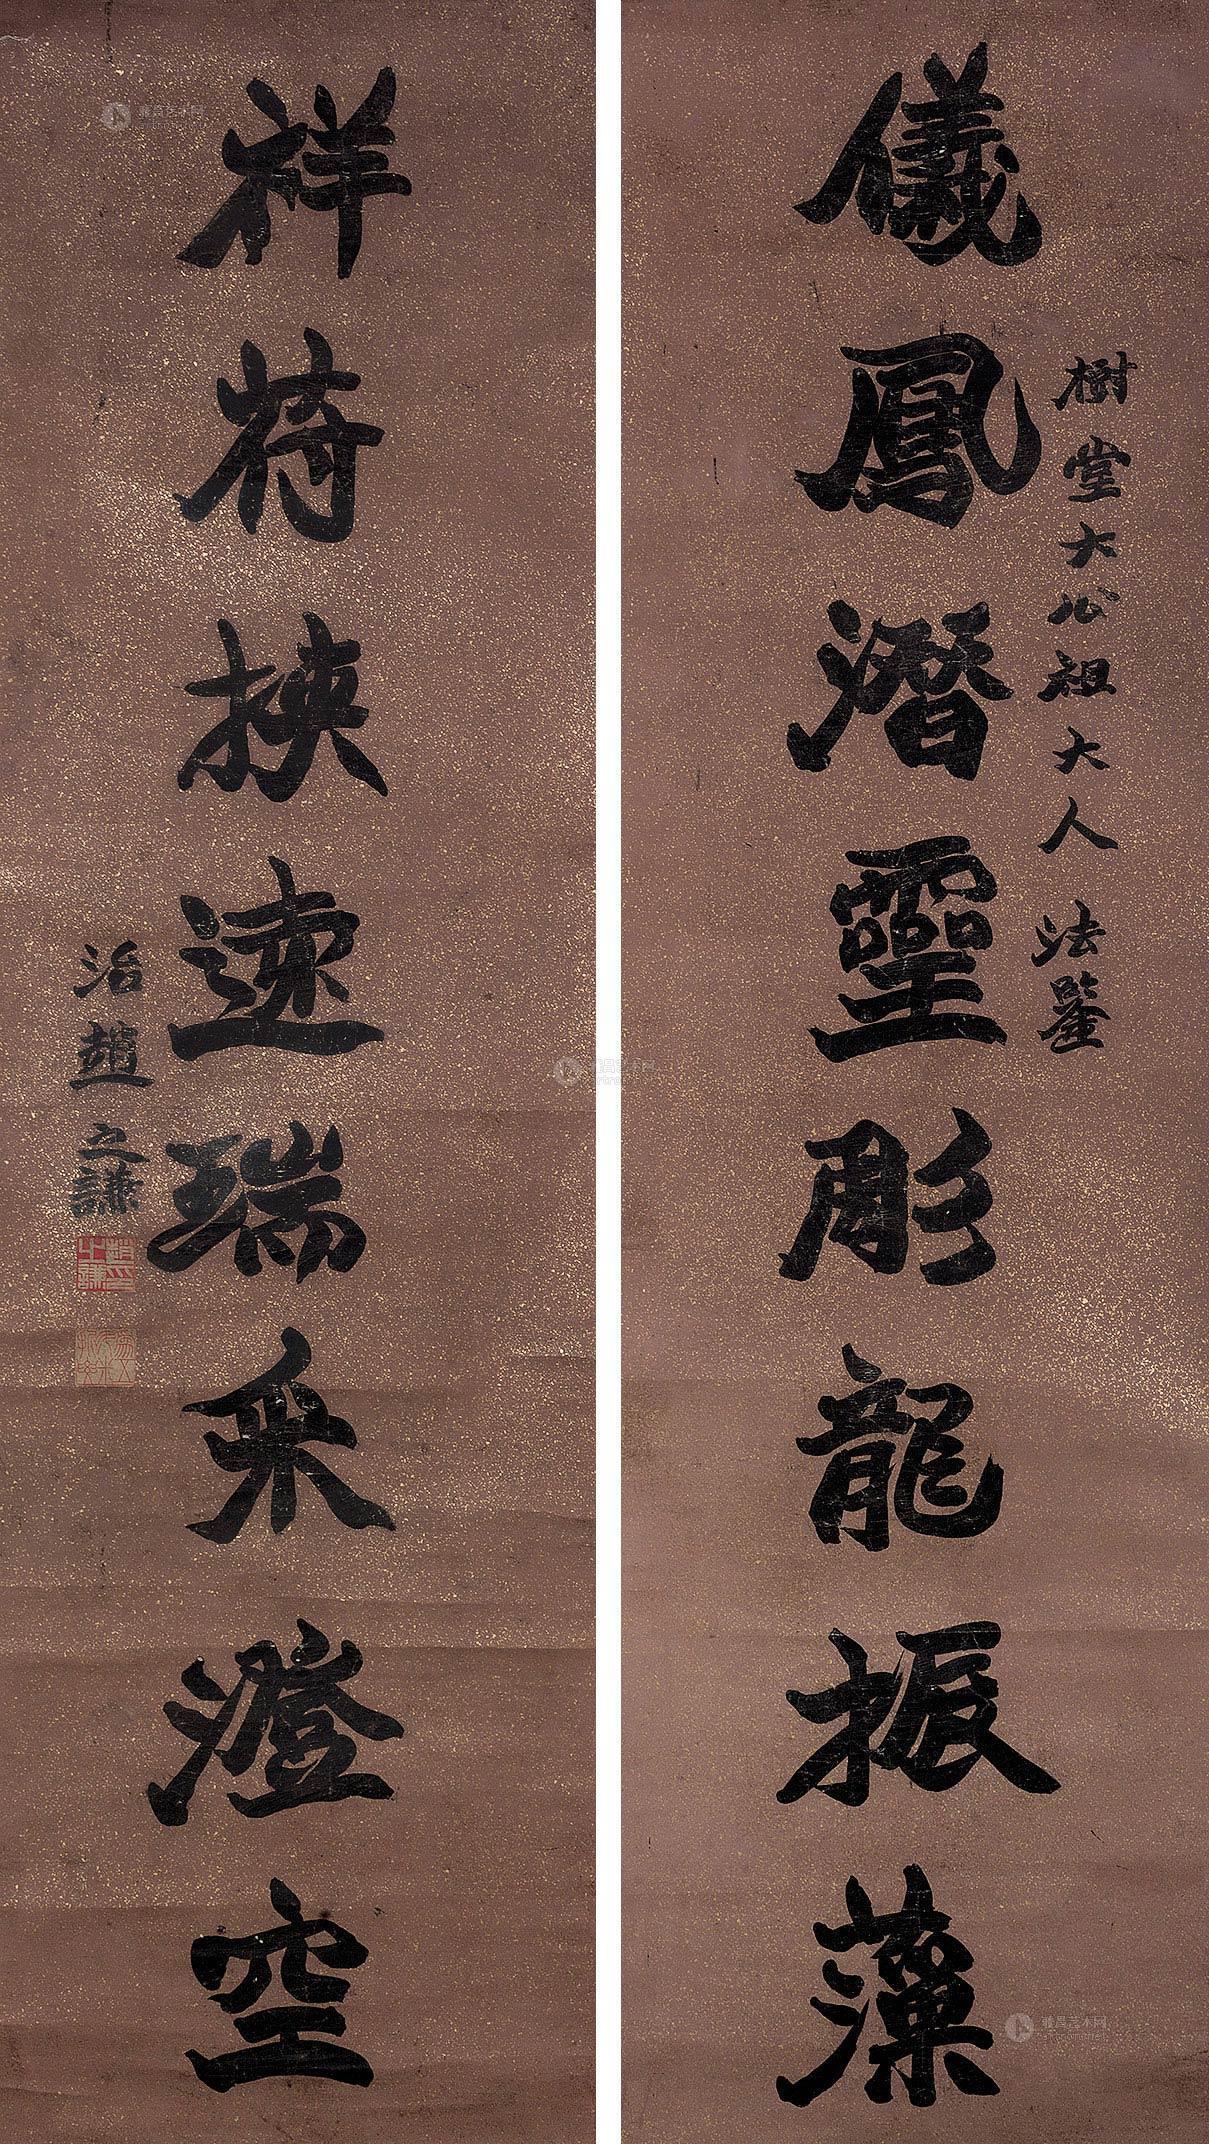 儀鳳潛靈彫龍振藻
樹堂大公祖大人 法鑒
祥符挾速瑞采澄空
治趙之謙